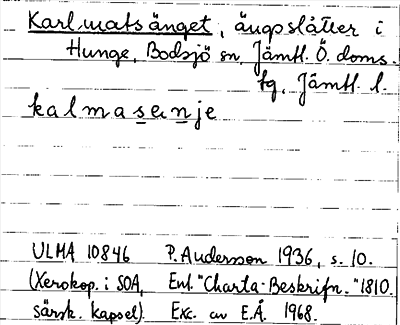 Karl-mats änget, ängsslåtter i
Hunge, Bodsjö sn, Jämtl. Ö. doms.
tg, Jämtl. l.
kalmasenje
ULMA 10846 P. Andersson 1936, s. 10.
(Xerokop. i SOA, Enl. "Charta-Beskrifn." 1810.
särsk. kapsel). Exc. av E.Å. 1968.